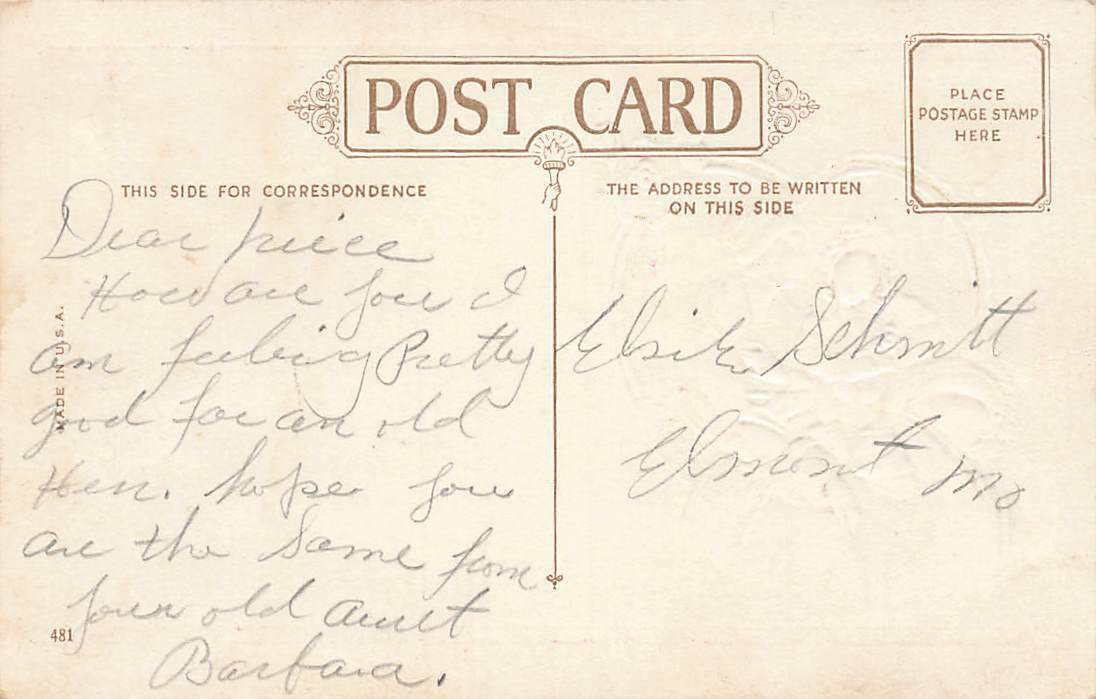 POST CARD
PLACE
POSTAGE STAMP
HERE
THIS SIDE FOR CORRESPONDENCE
THE ADDRESS TO BE WRITTEN
ON THIS SIDE
Dear niece
How are you I
am feeling Pretty
good for an old
Hen. hope you
are the same from
your old aunt
Barbara.
Elsie Schmitt
Elmont Mo
MADE IN U.S.A.
481